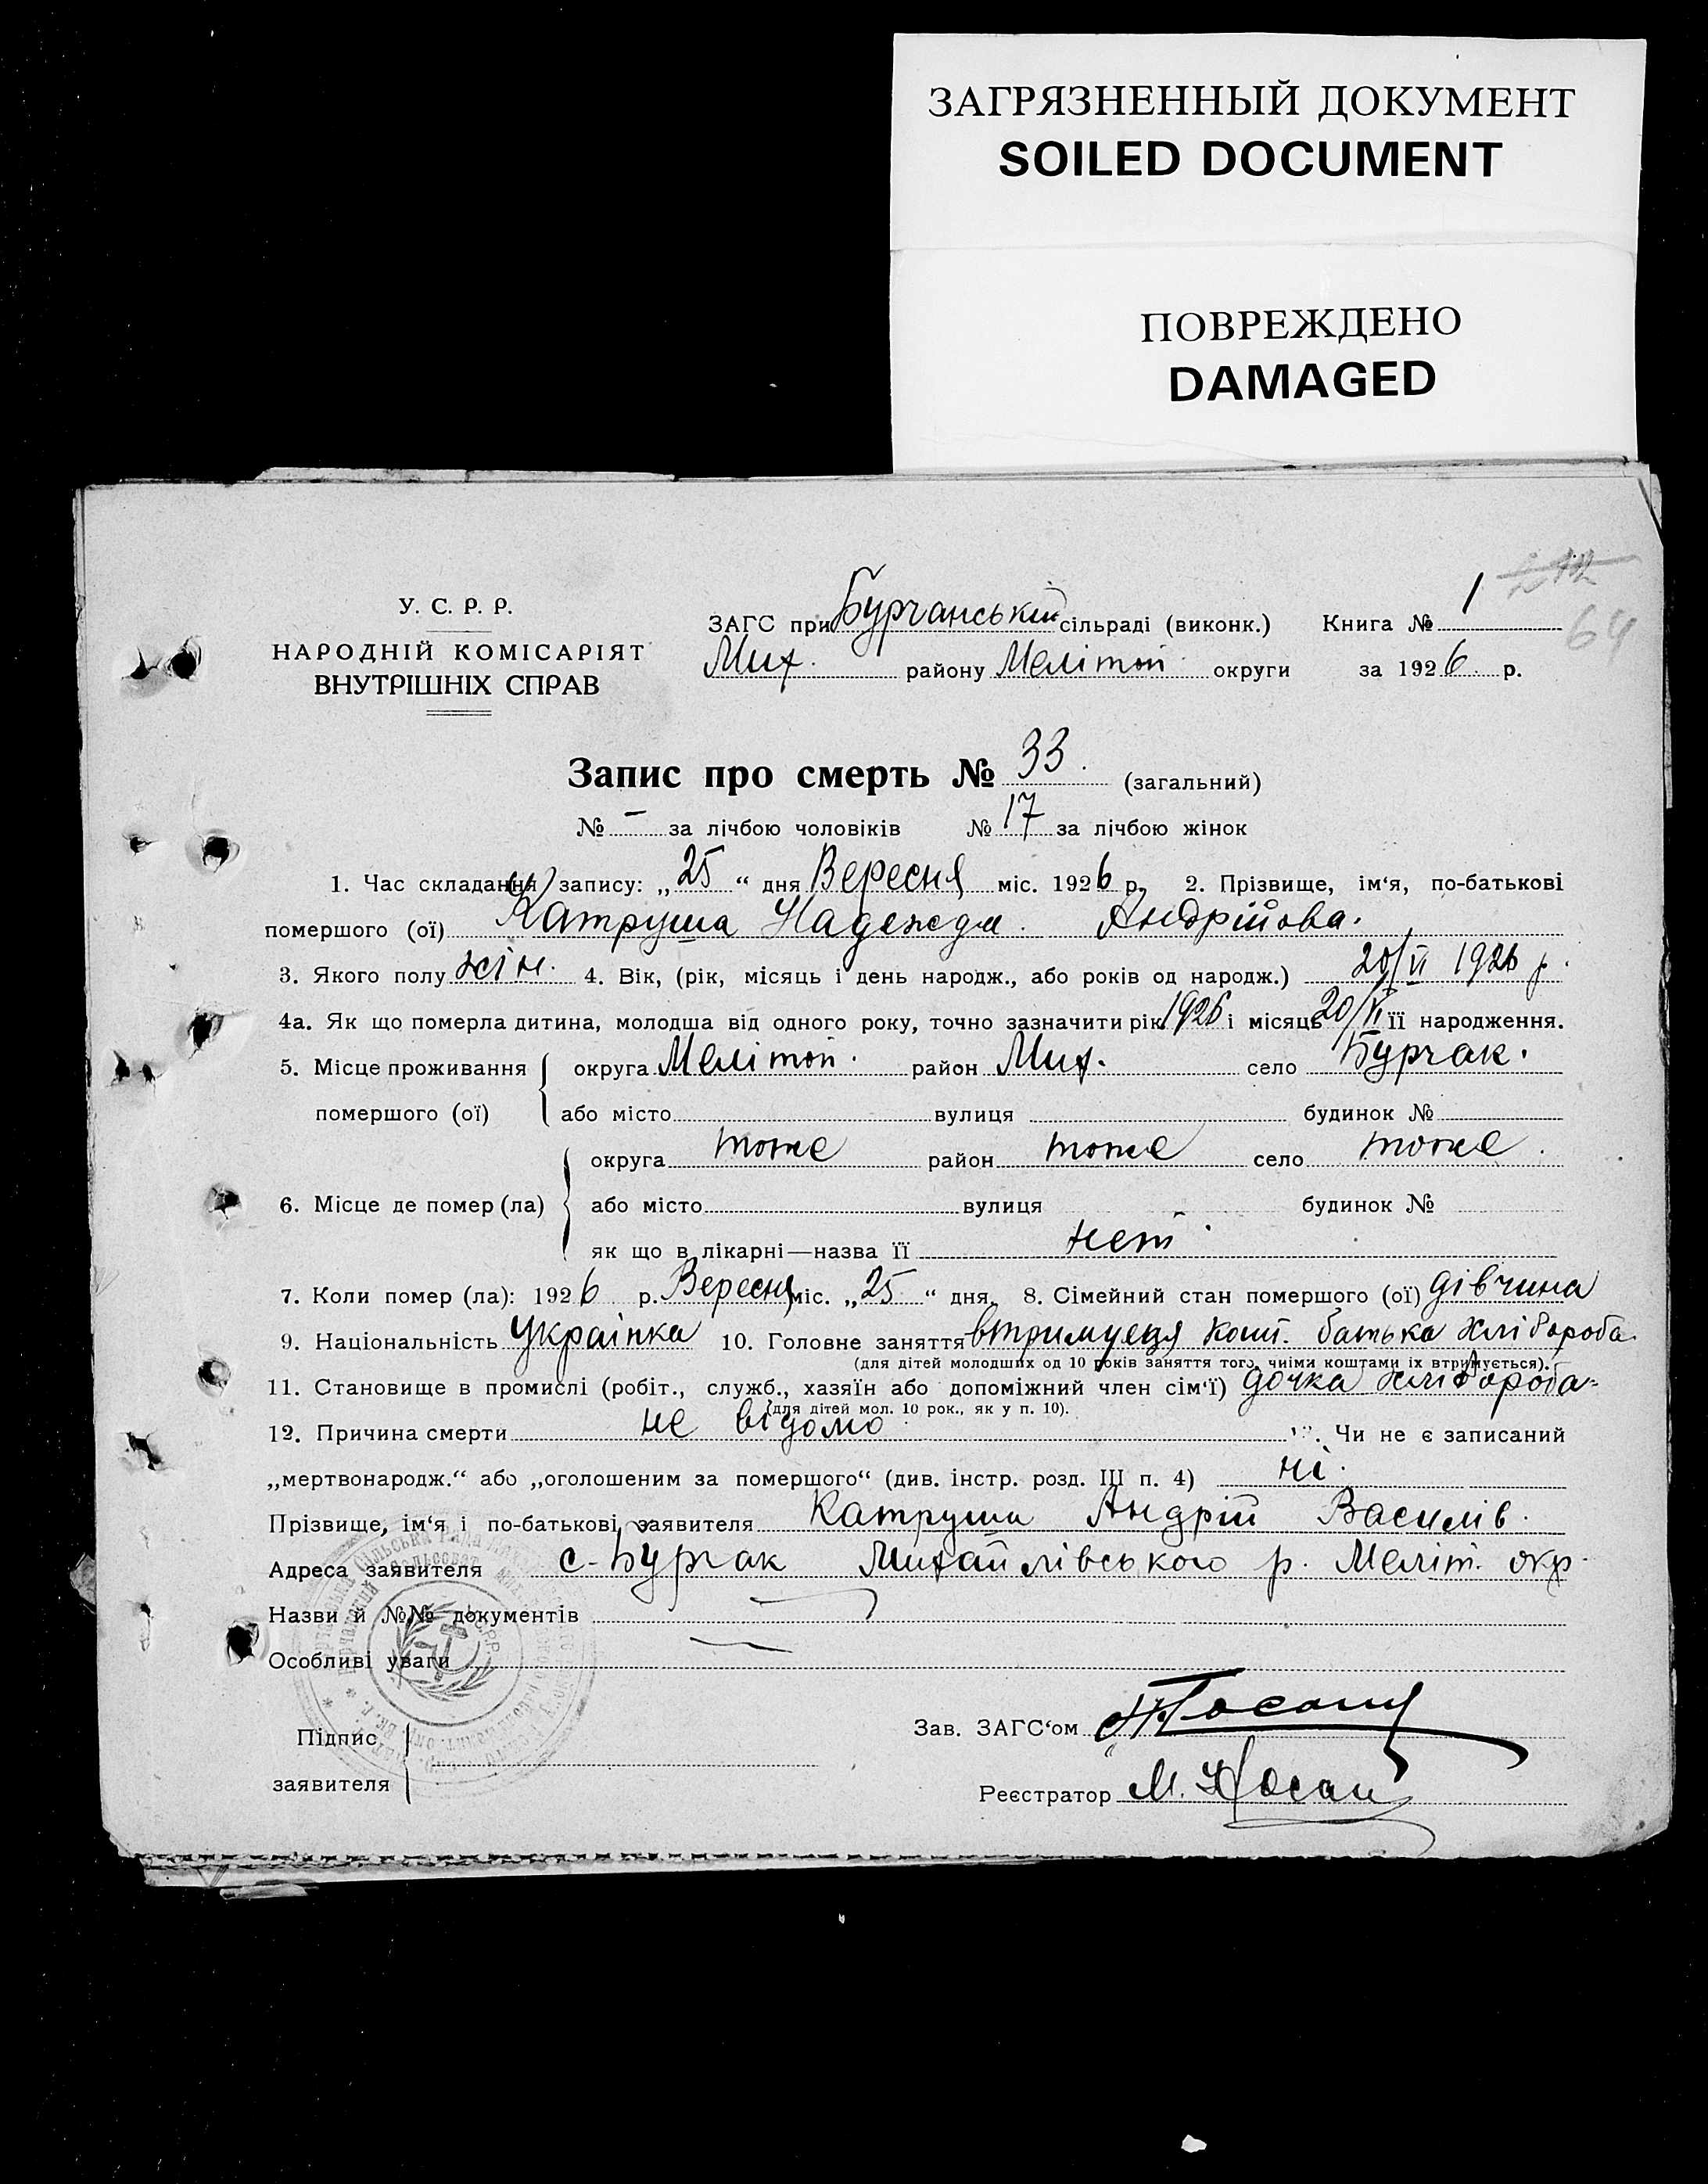 ЗАГРЯЗНЕННЫЙ ДОКУМЕНТ
SOILED DOCUMENT
ПОВРЕЖДЕНО
DAMAGED
64
У. С. Р. Р.
НАРОДНІЙ КОМІСАРІЯТ
ВНУТРІШНІХ СПРАВ
ЗАГС при Бурчанській сільраді (виконк.) Книга № 1
Мих. району Мелітоп. округи за 1926 р.
Запис про смерть № 33. (загальний)
№ – за лічбою чоловіків № 17 за лічбою жінок
1. Час складання запису: „25“ дня Вересня міс. 1926 р. 2. Прізвище, ім‘я, по-батькові
помершого (ої) Катруша Надежда. Андрійова.
3. Якого полу жін. 4. Вік, (рік, місяць і день народж., або років од народж.) 20/VI 1926 р.
4а. Як що померла дитина, молодша від одного року, точно зазначити рік 1926 і місяць 20/VI її народження.
5. Місце проживання округа Мелітоп. район Мих. село Бурчак.
помершого (ої) або місто вулиця будинок №
округа тоже район тоже село тоже.
6. Місце де помер (ла) або місто вулиця будинок №
як що в лікарні—назва її нет.
7. Коли помер (ла): 1926 р. Вересня міс. „25“ дня. 8. Сімейний стан помершого (ої) дівчина
9. Національність Українка 10. Головне заняття втримуеця кошт. батька хлібороба.
(для дітей молодших од 10 років заняття того, чиїми коштами їх втримується).
11. Становище в промислі (робіт., служб., хазяїн або допоміжний член сім‘ї) дочка хлібороба
(для дітей мол. 10 рок., як у п. 10).
12. Причина смерти не відомо. Чи не є записаний
„мертвонародж.“ або „оголошеним за помершого“ (див. інстр. розд. III п. 4) ні.
Прізвище, ім‘я і по-батькові заявителя Катруша Андрій Василів.
Адреса заявителя с-Бурчак Михайлівського р. Меліт. окр.
Назви й №№ документів —
Особливі уваги —
Підпис
заявителя
Зав. ЗАГС‘ом
Реєстратор М. Носан